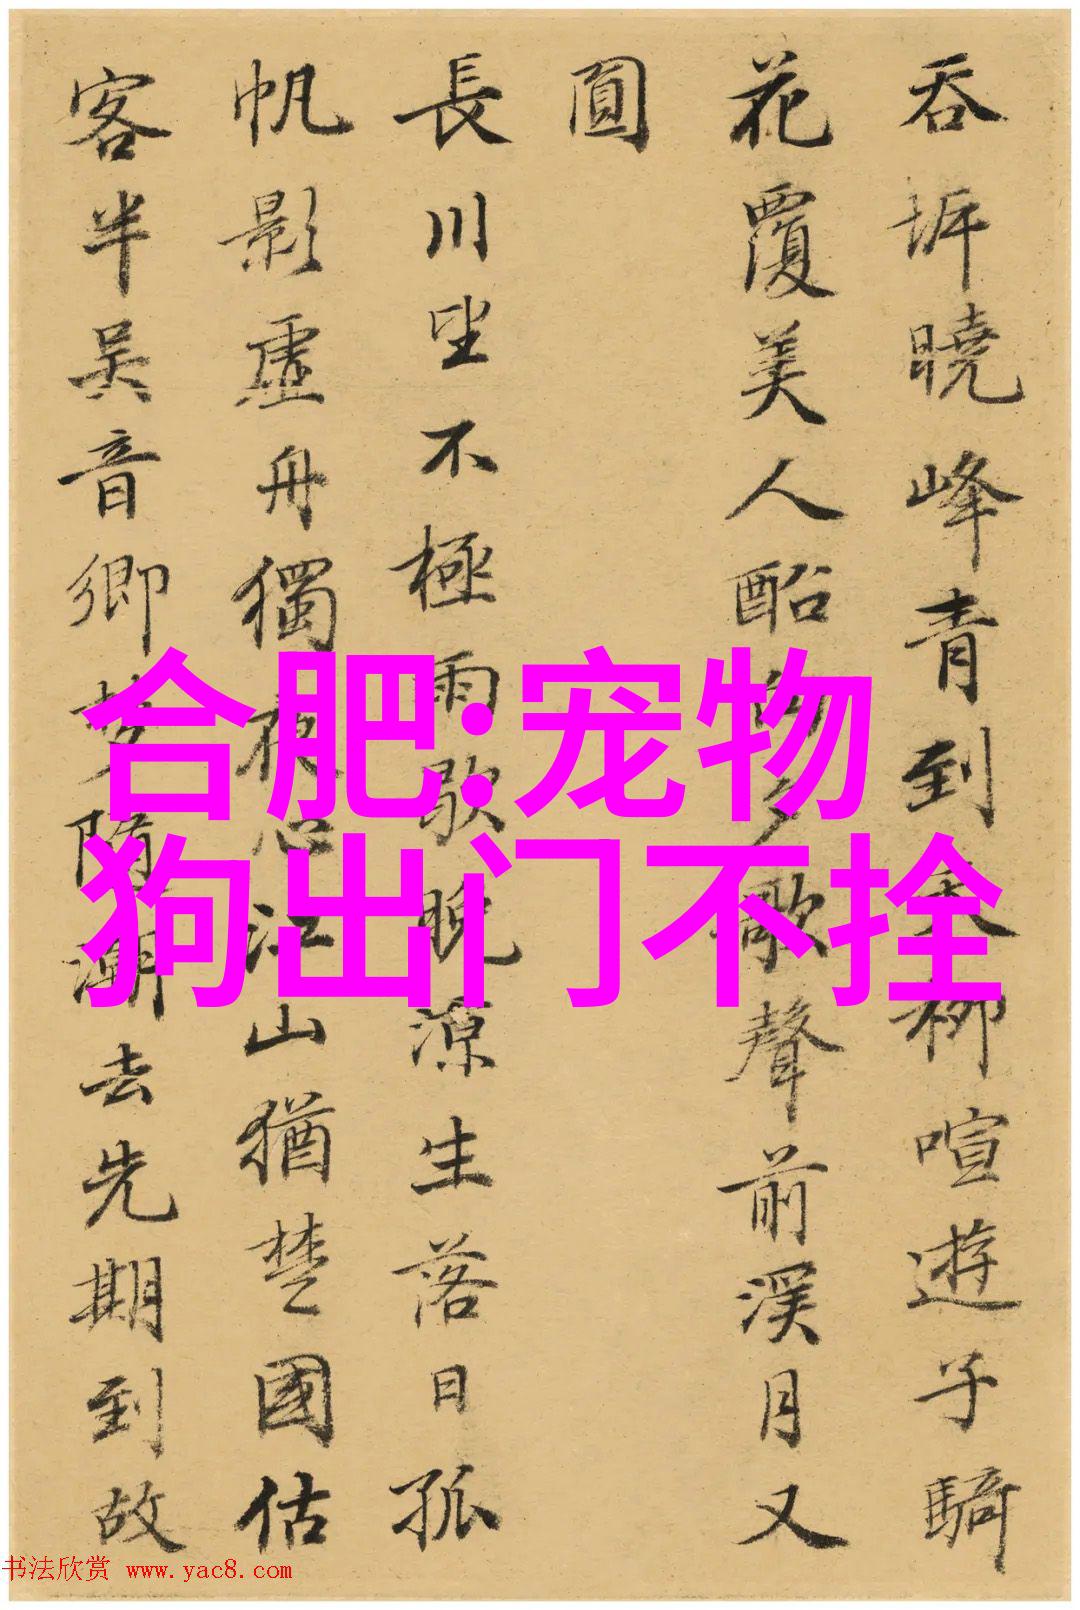 吞坼曉峰青到天柳喧遊子騎
花覆美人酩的多歌聲前溪月又
圓
長川坐不極雨歇晚涼生落日孤
帆影虛舟獨夜心江山猶楚國估
客半吳音鄉夢隨潮去先期到故
合肥:宠物
狗出门不拴
书法欣赏 www.yac8.com